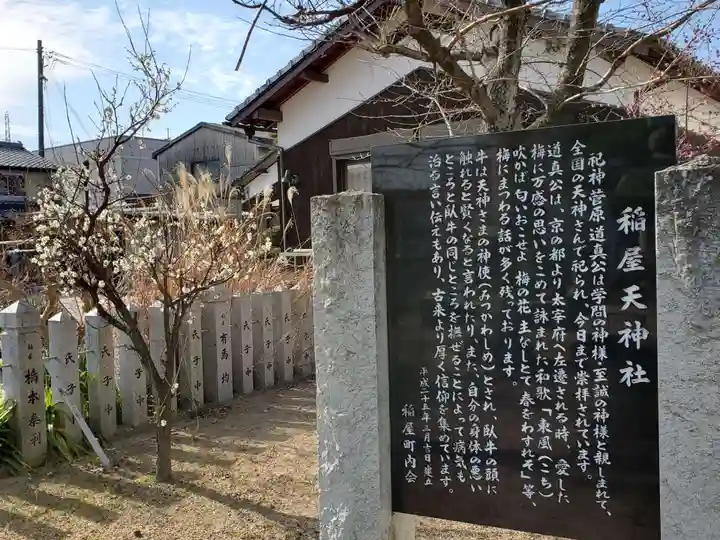 稲屋天神社
祀神菅原道真公は学問の神様・至誠の神様と親しまれて、
全国の天神さんで祀られ、今日まで崇拝されています。
道真公は、京の都より太宰府へ左遷される時、愛した
梅に万感の思いをこめて詠まれた和歌「東風(こち)
吹かば 匂いおこせよ 梅の花 主なしとて 春をわすれそ」等、
梅にまつわる話が多く残っております。
牛は天神さまの神使(みつかわしめ)とされ、臥牛の頭に
触れると賢くなると言われたり、また、自分の身体の悪い
ところと臥牛の同じところを撫ぜることによって病気も
治る言い伝えもあり、古来より厚く信仰を集めています。
平成二十五年三月吉日建立
稲屋町内会
橋本泰利
氏子中
氏子中
氏子中
氏子中
有馬均
氏子中
氏子中